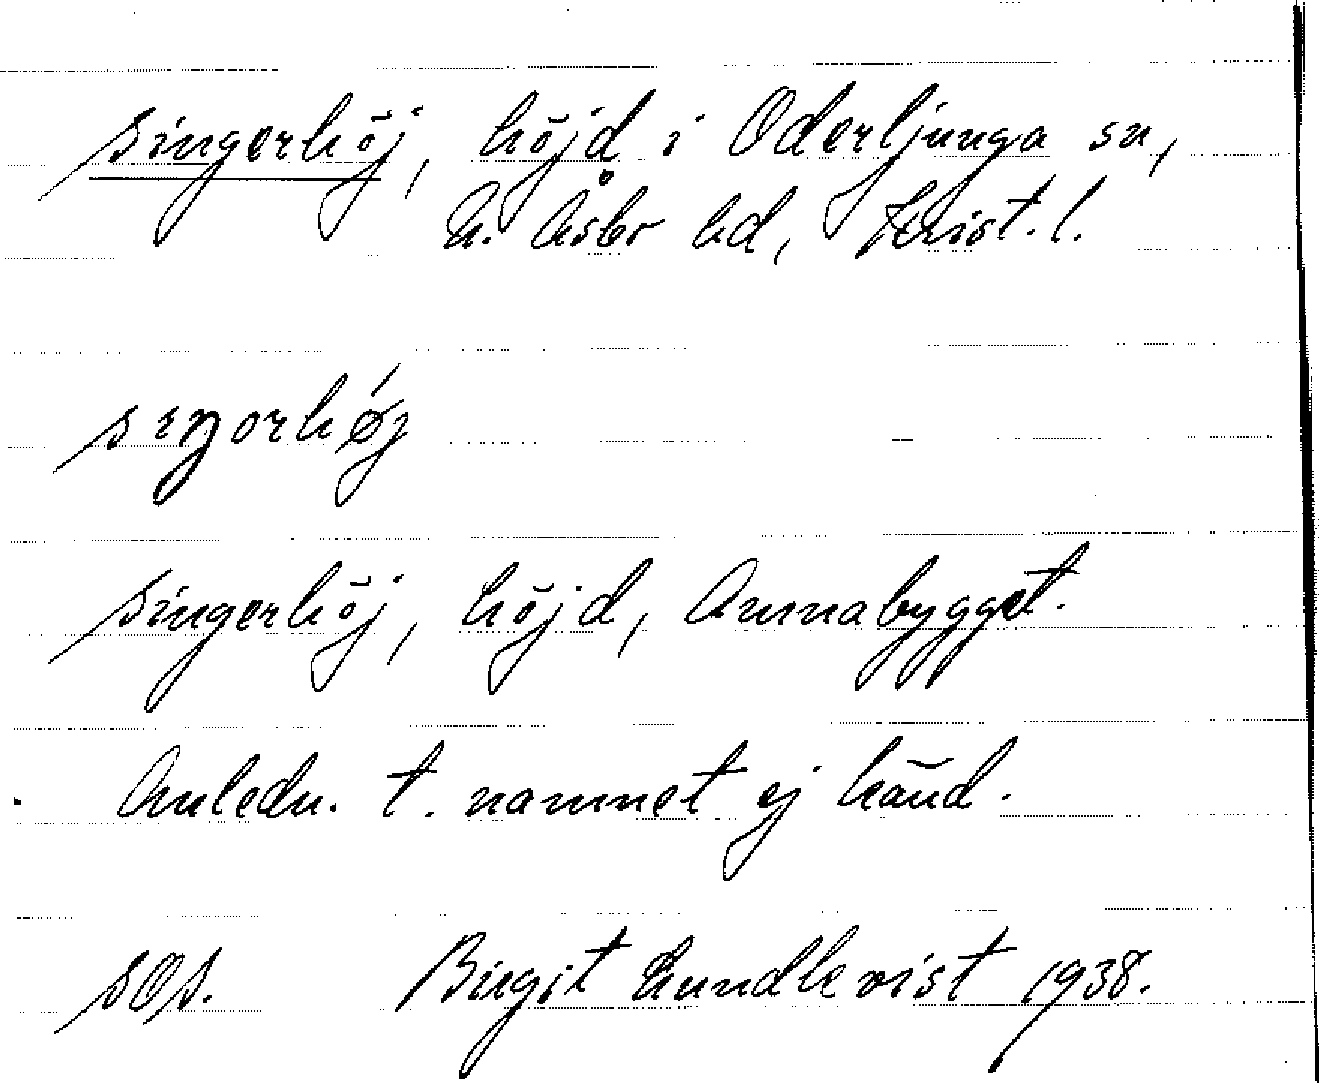 singerhöj, höjd i Oderljunga sn,
N. Åsbo hd, Krist. l.
siŋorhøj
singerhöj, höjd, Annabygget.
Anledn. t. namnet ej känd.
Birgit Lundkvist 1938.